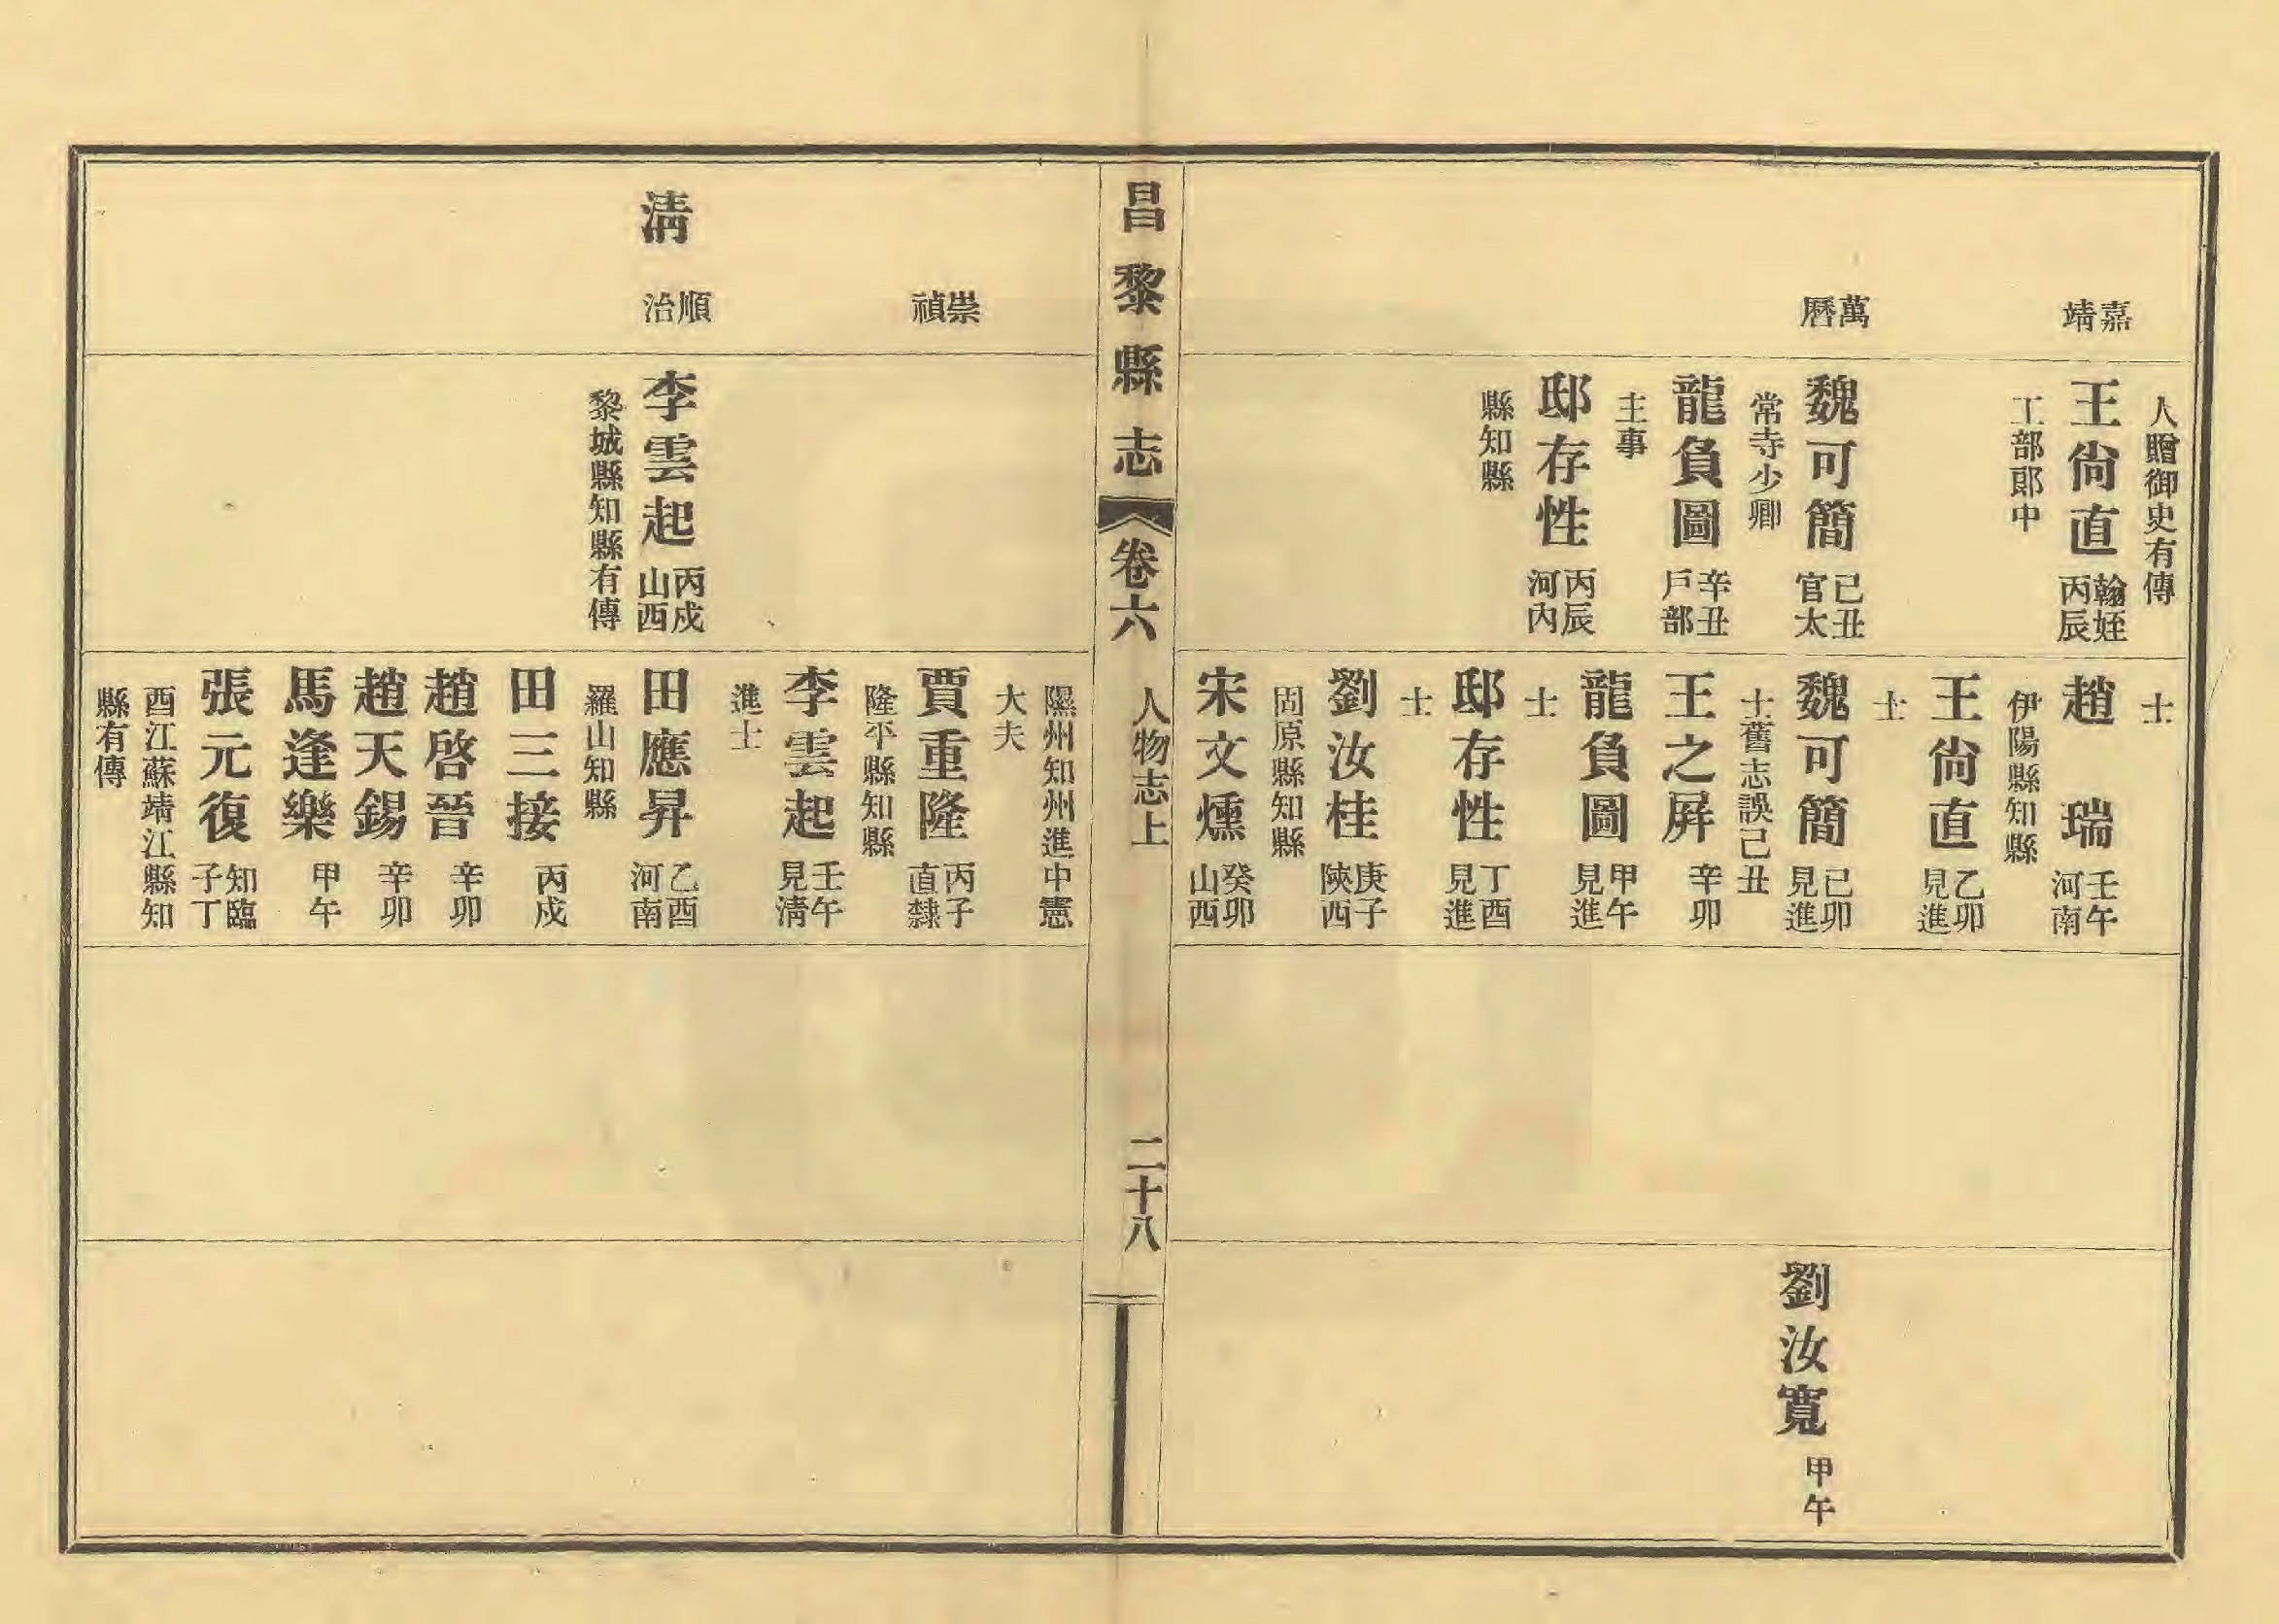 嘉靖
萬曆
人贈御史有傳
王尙直 翰姪丙辰
工部郎中
魏可簡 己丑官太
常寺少卿
龍負圖 辛丑戶部
主事
邸存性 丙辰河內
縣知縣
士
趙瑞 壬午河南
伊陽縣知縣
王尙直 乙卯見進
士
魏可簡 己卯見進
士舊志誤己丑
王之屛 辛卯
龍負圖 甲午見進
士
邸存性 丁酉見進
士
劉汝桂 庚子陝西
固原縣知縣
宋文燻 癸卯山西
劉汝寬 甲午
昌黎縣志 卷六 人物志上 二十八
崇禎
清 順治
李雲起 丙戌山西
黎城縣知縣有傳
隰州知州進中憲
大夫
賈重隆 丙子直隸
隆平縣知縣
李雲起 壬午見清
進士
田應昇 乙酉河南
羅山知縣
田三接 丙戌
趙啓晉 辛卯
趙天錫 辛卯
馬逢樂 甲午
張元復 知臨子丁
西江蘇靖江縣知
縣有傳